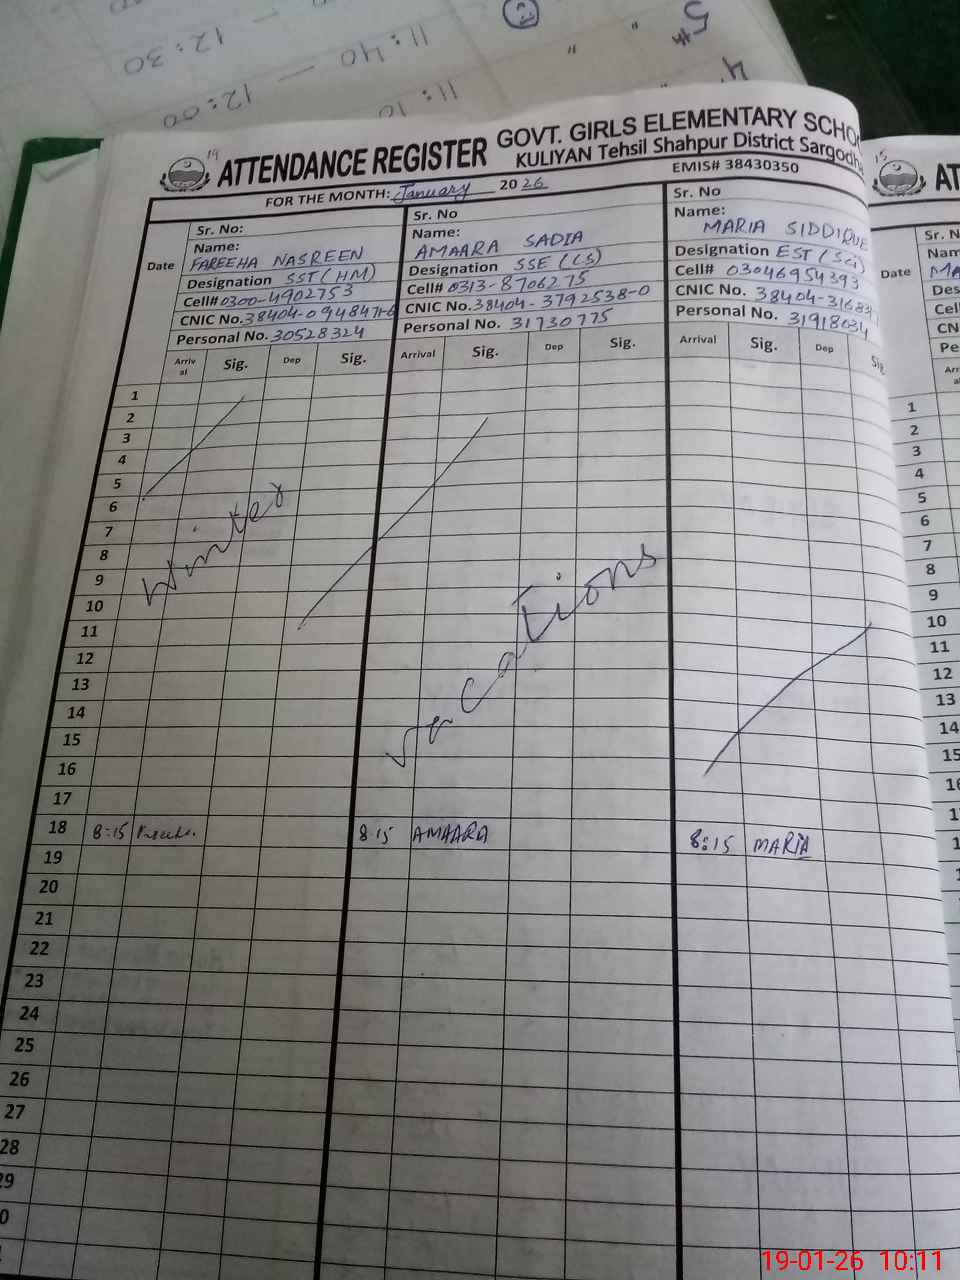 12:30
11:40 — 12:00
11:10
5#
4
19
ATTENDANCE REGISTER GOVT. GIRLS ELEMENTARY SCHO
KULIYAN Tehsil Shahpur District Sargodha
FOR THE MONTH: January 2026 EMIS# 38430350
Date
Sr. No:
Name:
FAREEHA NASREEN
Designation SST(HM)
Cell# 0300-4902753
CNIC No. 38404-0948471-6
Personal No. 30528324
Arriv al Sig. Dep Sig.
Sr. No
Name:
AMAARA SADIA
Designation SSE (CS)
Cell# 0313-8706275
CNIC No. 38404-3792538-0
Personal No. 31730775
Arrival Sig. Dep Sig.
Sr. No
Name:
MARIA SIDDIQUE
Designation EST (Sci)
Cell# 03046954393
CNIC No. 38404-31683
Personal No. 31918034
Arrival Sig. Dep Sig
1
2
3
4
5
6
7
8
9
10
11
12
13
14
15
16
17
Winter
vacations
18 8:15 8:15 AMAARA 8:15 MARIA
19
20
21
22
23
24
25
26
27
28
29
0
15
AT
Sr. N
Nam
MA
Date
Des
Cell
CN
Pe
Arr
a
1
2
3
4
5
6
7
8
9
10
11
12
13
14
15
16
1
1
19-01-26 10:11